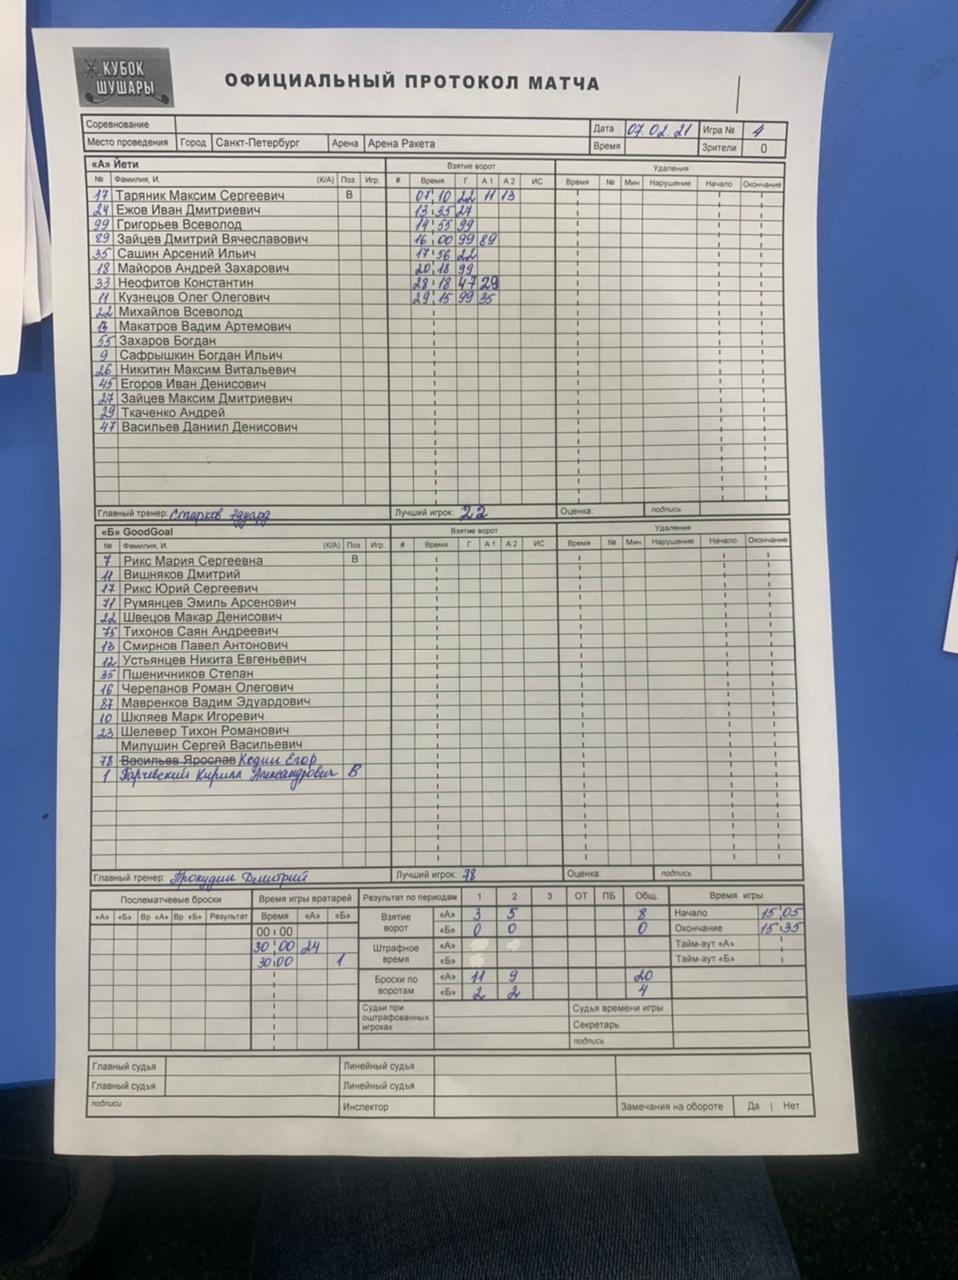 КУБОК ШУШАРЫ
ОФИЦИАЛЬНЫЙ ПРОТОКОЛ МАТЧА
Соревнование Дата 07.02.21 Игра № 4
Место проведения Город Санкт-Петербург Арена Арена Ракета Время Зрители 0
«А» Йети Взятие ворот Удаления
№ Фамилия, И. (К/А) Поз. Игр. # Время Г А 1 А 2 ИС Время № Мин Нарушение Начало Окончание
17 Таряник Максим Сергеевич В 07 10 22 11 13
24 Ежов Иван Дмитриевич 13 35 27
99 Григорьев Всеволод 14 55 99
89 Зайцев Дмитрий Вячеславович 16 00 99 89
35 Сашин Арсений Ильич 17 56 22
18 Майоров Андрей Захарович 20 18 99
33 Неофитов Константин 28 18 47 29
11 Кузнецов Олег Олегович 29 15 99 35
22 Михайлов Всеволод
13 Макатров Вадим Артемович
55 Захаров Богдан
9 Сафрышкин Богдан Ильич
26 Никитин Максим Витальевич
45 Егоров Иван Денисович
27 Зайцев Максим Дмитриевич
29 Ткаченко Андрей
47 Васильев Даниил Денисович
Главный тренер: Старков Эдуард Лучший игрок: 22 Оценка: подпись
«Б» GoodGoal Взятие ворот Удаления
№ Фамилия, И. (К/А) Поз. Игр. # Время Г А 1 А 2 ИС Время № Мин Нарушение Начало Окончание
7 Рикс Мария Сергеевна В
11 Вишняков Дмитрий
17 Рикс Юрий Сергеевич
71 Румянцев Эмиль Арсенович
22 Швецов Макар Денисович
75 Тихонов Саян Андреевич
13 Смирнов Павел Антонович
12 Устьянцев Никита Евгеньевич
35 Пшеничников Степан
16 Черепанов Роман Олегович
87 Мавренков Вадим Эдуардович
10 Шкляев Марк Игоревич
23 Шелевер Тихон Романович
Милушин Сергей Васильевич
78 Васильев Ярослав Кодин Егор
1 Кирилл Александрович В
Главный тренер: Прокудин Дмитрий Лучший игрок: 78 Оценка: подпись
Послематчевые броски Время игры вратарей Результат по периодам 1 2 3 ОТ ПБ Общ. Время игры
«А» «Б» Вр «А» Вр «Б» Результат Время «А» «Б» Взятие ворот «А» 3 5 8 Начало 15 05
00 00 «Б» 0 0 0 Окончание 15 35
30 00 24 Штрафное время «А» Тайм-аут «А»
30 00 1 «Б» Тайм-аут «Б»
Броски по воротам «А» 11 9 20
«Б» 2 2 4
Судьи при оштрафованных игроках Судья времени игры
Секретарь
подпись
Главный судья Линейный судья
Главный судья Линейный судья
подписи Инспектор Замечания на обороте Да | Нет